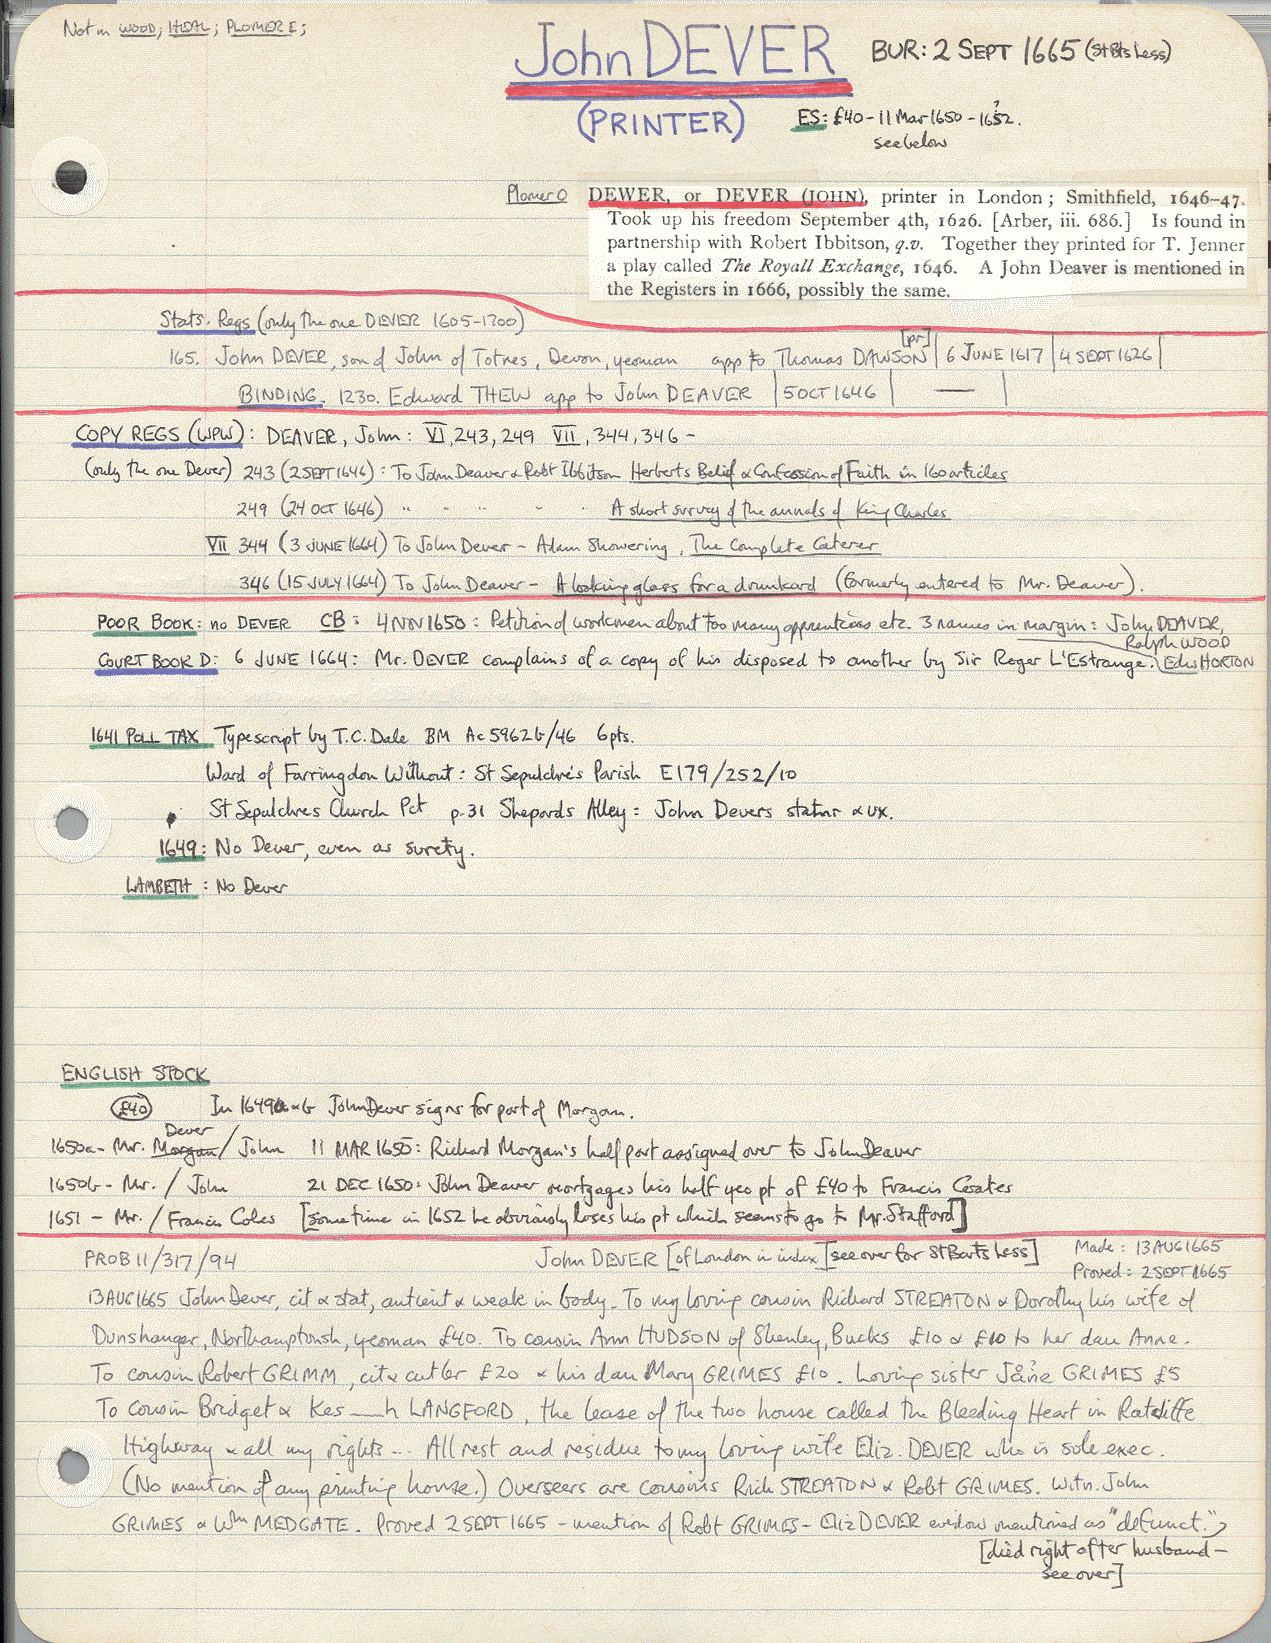 Not in WOOD; HEAL; PLOMER E;
John DEVER BUR: 2 SEPT 1665 (St Bts Less)
(PRINTER) ES: £40 - 11 Mar 1650 - 1652?.
see below
Plomer O DEWER, or DEVER (JOHN), printer in London; Smithfield, 1646–47.
Took up his freedom September 4th, 1626. [Arber, iii. 686.] Is found in
partnership with Robert Ibbitson, q.v. Together they printed for T. Jenner
a play called The Royall Exchange, 1646. A John Deaver is mentioned in
the Registers in 1666, possibly the same.
Stats. Regs (only the one DEVER 1605-1700)
165. John DEVER, son of John of Totnes, Devon, yeoman app to Thomas DAWSON [pr] | 6 JUNE 1617 | 4 SEPT 1626 |
BINDING. 1230. Edward THEW app to John DEAVER | 5 OCT 1646 | — |
COPY REGS (WPW): DEAVER, John: VI, 243, 249 VII, 344, 346 -
(only the one Dever) 243 (2 SEPT 1646): To John Deaver & Robt Ibbitson Herberts Belief & Confession of Faith in 160 articles
249 (24 OCT 1646) " " " " " A short survey of the annals of King Charles
VII 344 (3 JUNE 1664) To John Dever - Adam Showering, The Complete Caterer
346 (15 JULY 1664) To John Deaver - A looking glass for a drunkard (formerly entered to Mr. Deaver).
POOR BOOK: no DEVER CB: 4 NOV 1650: Petition of workmen about too many apprentices etc. 3 names in margin: John DEAVER,
Ralph WOOD
COURT BOOK D: 6 JUNE 1664: Mr. DEVER complains of a copy of his disposed to another by Sir Roger L'Estrange. Edw HORTON
1641 POLL TAX Typescript by T.C. Dale BM Ac 5962 b/46 6 pts.
Ward of Farringdon Without: St Sepulchre's Parish E179/252/10
St Sepulchres Church Pct p. 31 Shepards Alley: John Devers statnr & ux.
1649: No Dever, even as surety.
LAMBETH: No Dever
ENGLISH STOCK
£40 In 1649 a & b John Dever signs for part of Morgan.
Dever
1650a - Mr. Morgan / John 11 MAR 1650: Richard Morgan's half part assigned over to John Deaver
1650b - Mr. / John 21 DEC 1650: John Deaver mortgages his half yeo pt of £40 to Francis Coates
1651 - Mr. / Francis Coles [sometime in 1652 he obviously loses his pt which seems to go to Mr. Stafford]
PROB 11/317/94 John DEVER [of London in index] [see over for St Barts Less] Made: 13 AUG 1665
Proved: 2 SEPT 1665
13 AUG 1665 John Dever, cit & stat, antient & weak in body. To my loving cousin Richard STREATON & Dorothy his wife of
Dunshanger, Northamptonsh, yeoman £40. To cousin Ann HUDSON of Shenley, Bucks £10 & £10 to her dau Anne.
To cousin Robert GRIMM, cit & cutler £20 & his dau Mary GRIMES £10. Loving sister Jane? GRIMES £5
To cousin Bridget & Kes——h LANGFORD, the lease of the two house called the Bleeding Heart in Ratcliffe
Highway & all my rights ... All rest and residue to my loving wife Eliz. DEVER who is sole exec.
(No mention of any printing house.) Overseers are cousins Rich STREATON & Robt GRIMES. Witn. John
GRIMES & Wm MEDGATE. Proved 2 SEPT 1665 - mention of Robt GRIMES - Eliz DEVER widow mentioned as "defunct."
[died right after husband -
see over]